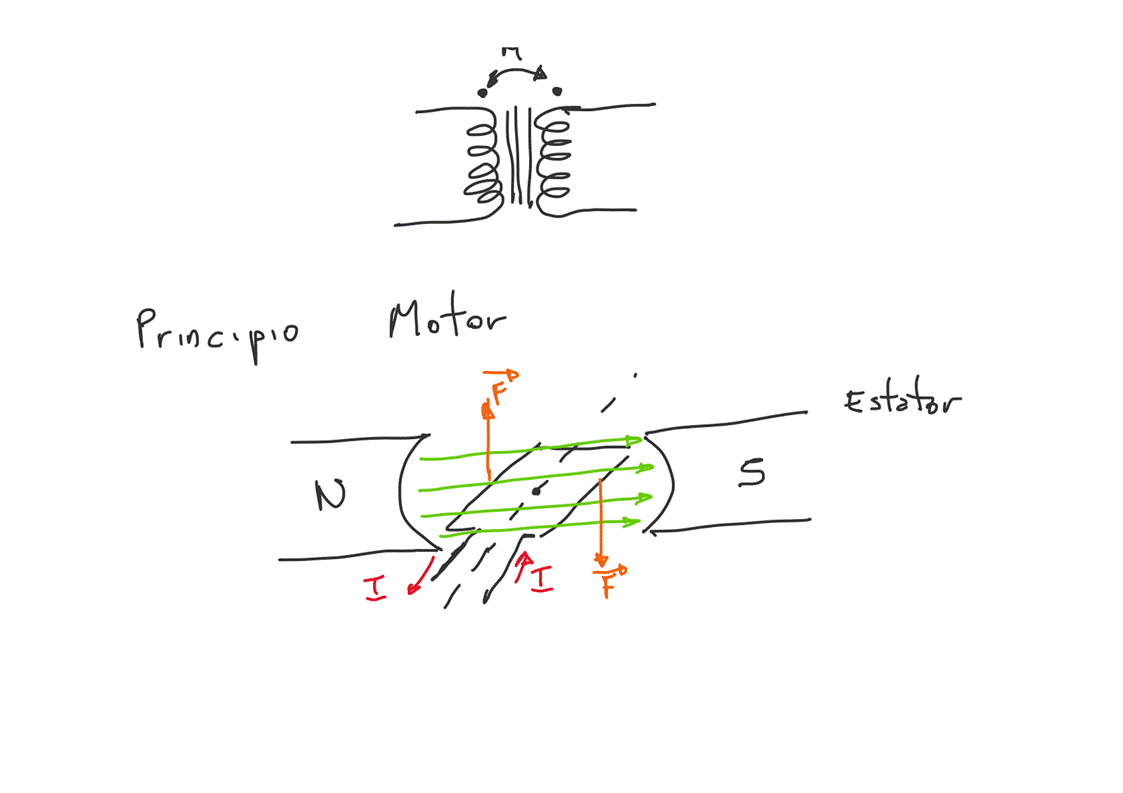 M
Principio Motor
F
Estator
N
S
I
I
F